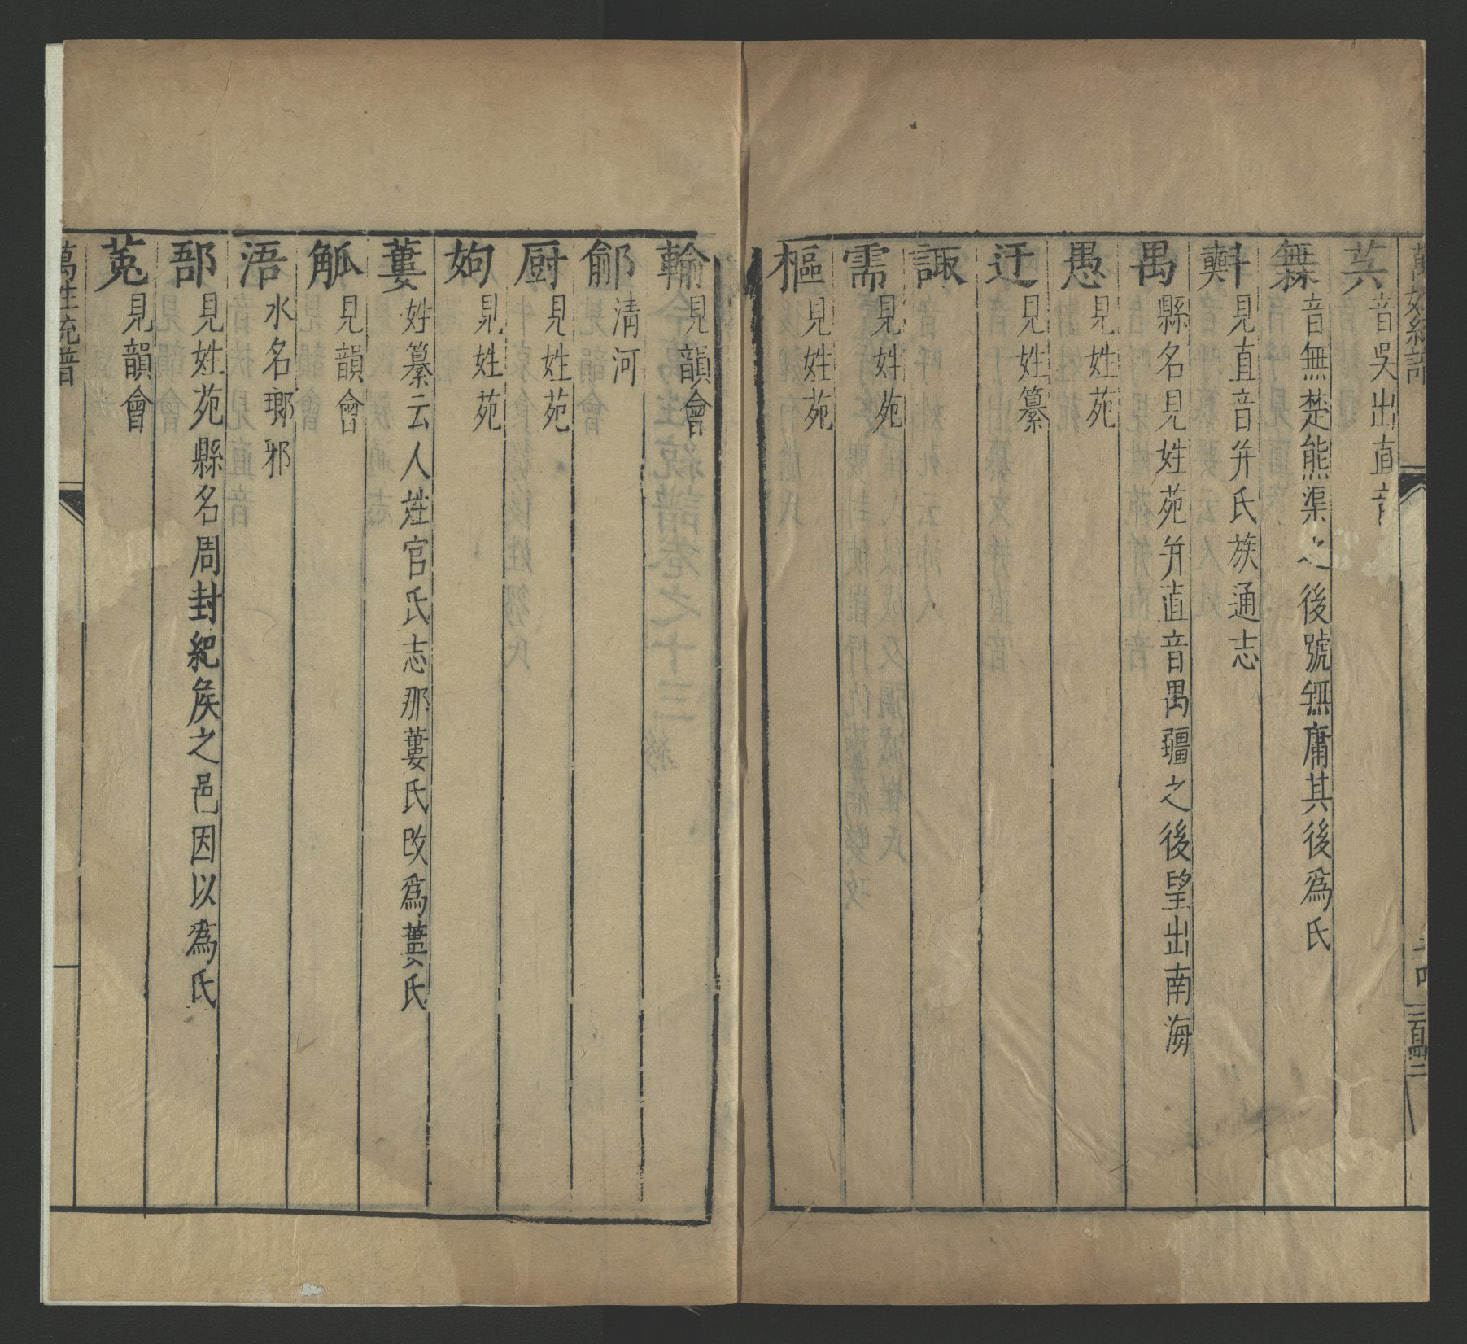 萬姓統譜
茣音吳出直音
橆音無楚熊渠之後號無庸其後爲氏
㪺見直音并氏族通志
禺縣名見姓苑并直音禺疆之後望出南海
愚見姓苑
迂見姓纂
諏
需見姓苑
樞見姓苑
輸見韻會
鄃清河
厨見姓苑
姁見姓苑
蔞姓纂云人姓官氏志那蔞氏改爲蔞氏
觚見韻會
浯水名瑯邪
郚見姓苑縣名周封紀矦之邑因以爲氏
菟見韻會
萬姓統譜